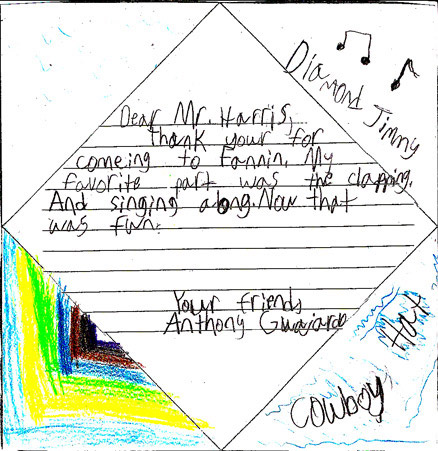 Diamond Jimmy
Dear Mr. Harris,
Thank your for
comeing to Fannin. My
favorite part was the clapping.
And singing along. Now that
was fun.
Your friends
Anthony Guajardo
Hat
Cowboy